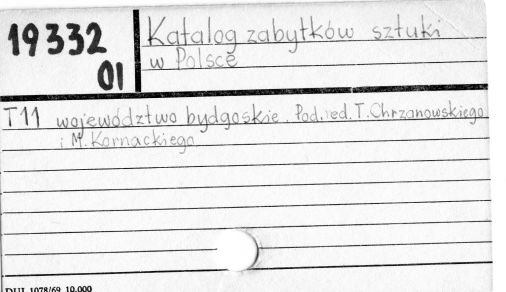 19332
01
Katalog zabytków sztuki
w Polsce
T11 województwo bydgoskie. Pod. red. T. Chrzanowskiego
i M. Kornackiego
DUL 1078/69 10.000